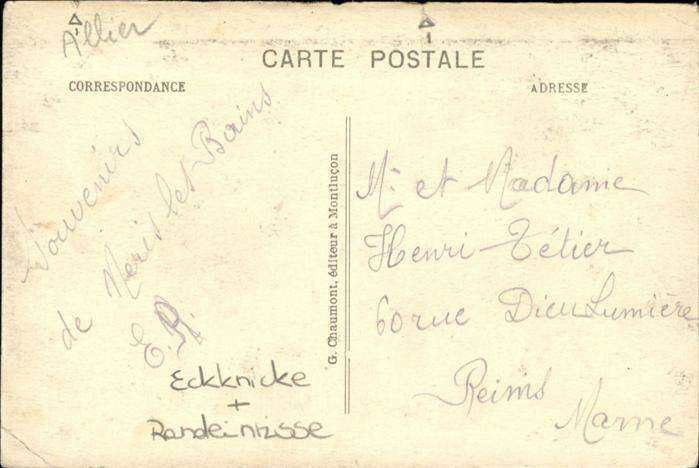 Allier
CARTE POSTALE
CORRESPONDANCE
ADRESSE
Souvenirs
de Neris les Bains
E.R.
Eckknicke
+
Randeinrisse
G. Chaumont, éditeur à Montluçon
Mr et Madame
Henri Tétier
60 rue Dieu Lumière
Reims
Marne